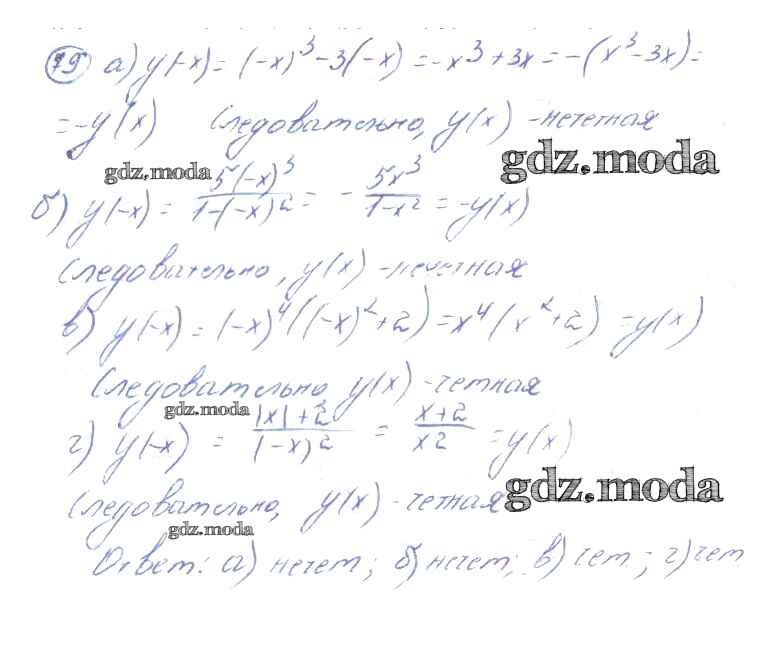 79 а) y(-x) = (-x)³ - 3(-x) = -x³ + 3x = -(x³ - 3x) =
= -y(x) Следовательно, y(x) - нечетная
gdz.moda
gdz.moda
б) y(-x) = 5(-x)³ / 1-(-x)² = - 5x³ / 1-x² = -y(x)
Следовательно, y(x) - нечетная
в) y(-x) = (-x)⁴((-x)²+2) = x⁴(x²+2) = y(x)
Следовательно y(x) - четная
gdz.moda
г) y(-x) = |x|+2 / (-x)² = x+2 / x2 = y(x)
Следовательно, y(x) - четная
gdz.moda
gdz.moda
Ответ: а) нечет; б) нечет; в) чет; г) чет